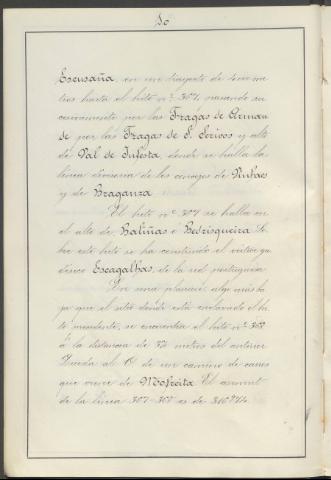 50
Escusaña, en un trayecto de
tros hasta el hito nº 307, pasando su
por las Fragas de Arman
de por las Fragas de S. y alto
de Val de Infesta, donde se halla la
línea divisoria de los concejos de Vinhaes
y de Braganza.
El hito nº 307 se halla en
el alto de Baliñas o Bedrisqueira. So-
bre este hito se ha construido el vértice geo
désico Escagalhas, de la red portuguesa
En una planicie algo más ba
ja que el sitio donde está enclavado el hi
to precedente, se encuentra el hito nº 308
á la distancia de metros del anterior
Queda al O. de un camino de carros
que viene de Mofreita. El azimut
de la línea 307-308 es de